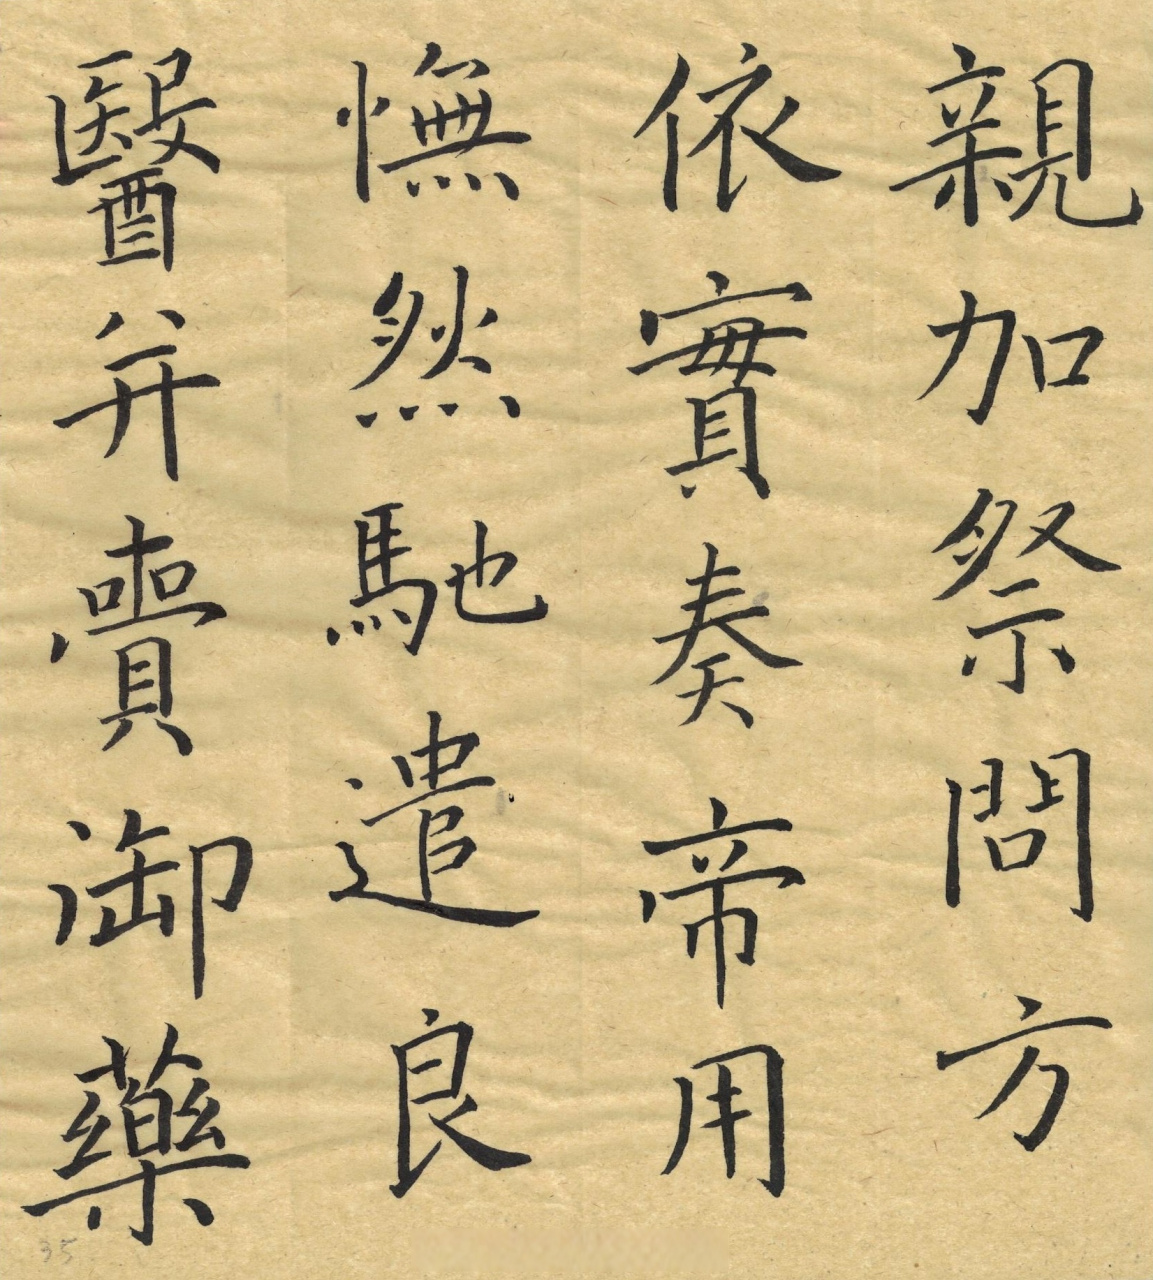 親加祭問方
依實奏帝用
憮然馳遣良
醫并賷御藥
35